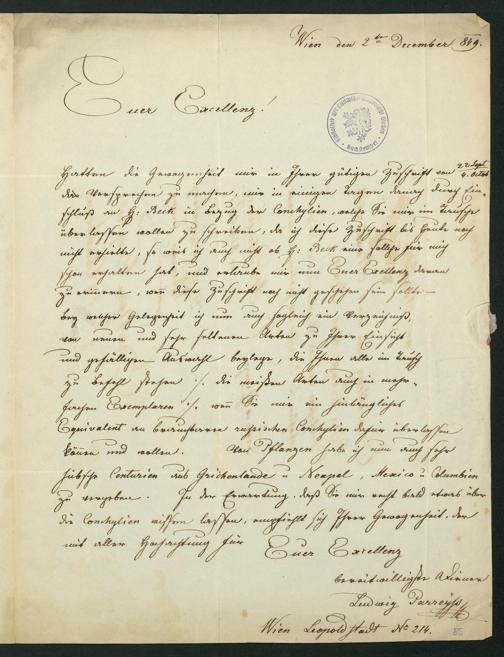 Wien den 2ten December 849.
Euer Excellenz!
22 Sept
4. Octob
Hatten die Gewogenheit mir in Ihrer gütigen Zuschrift von
das Versprechen zu machen, mir in einigen Tagen darnach durch Ein-
schluß an H: Beck in bezug der Conchylien, welche Sie mir im Tausche
überlassen wollen zu schreiben, da ich diese Zuschrift bis heute noch
nicht erhielte, so weis ich auch nicht ob H: Beck eine solche für mich
schon erhalten hat, und erlaube mir nun Euer Excellenz daran
zu erinnern, wen diese Zuschrift noch nicht geschehen sein sollte –
bey welcher Gelegenheit ich nun auch sogleich ein Verzeichniß,
von neuen und sehr seltenen Arten zu Ihrer Einsicht
und gefälligen Auswahl beylege, die Ihnen alle im Tausch
zu befehl stehen ·/. die meisten Arten auch in mehr-
fachen Exemplaren ·/. wen Sie mir ein hinlängliches
Equivalent an brauchbaren russischen Conchylien dafür überlassen
können und wollen. Von Pflanzen habe ich nun auch sehr
hübsche Centurien aus Griechenlande u Neapel, Mexico u Columbien
zu vergeben. In der Erwartung, daß Sie mir recht bald etwas über
die Conchylien wissen lassen, empfiehlt sich Ihrer Gewogenheit, der
mit aller Hochachtung für
Euer Excellenz
bereitwilligste Diener
Ludwig Parreyss
Wien Leopoldstadt No 214.
85